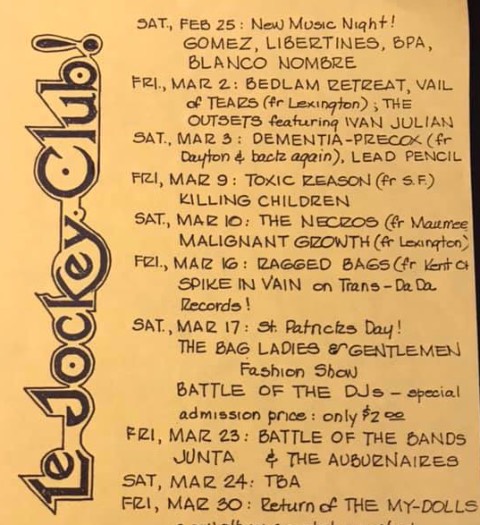 Le Jockey Club!
SAT., FEB 25 : New Music Night!
GOMEZ, LIBERTINES, BPA,
BLANCO NOMBRE
FRI., MAR 2 : BEDLAM RETREAT, VAIL
of TEARS (fr Lexington) ; THE
OUTSETS featuring IVAN JULIAN
SAT., MAR 3 : DEMENTIA-PRECOX (fr
Dayton & back again), LEAD PENCIL
FRI, MAR 9 : TOXIC REASON (fr S.F.)
KILLING CHILDREN
SAT., MAR 10 : THE NECROS (fr Maumee
MALIGNANT GROWTH (fr Lexington)
FRI., MAR 16 : RAGGED BAGS (fr Kent O
SPIKE IN VAIN on Trans-Da Da
Records!
SAT., MAR 17 : St. Patricks Day!
THE BAG LADIES & GENTLEMEN
Fashion Show
BATTLE OF THE DJs - special
admission price : only $2 00
FRI, MAR 23 : BATTLE OF THE BANDS
JUNTA & THE AUBURNAIRES
SAT, MAR 24 : TBA
FRI, MAR 30 : Return of THE MY-DOLLS